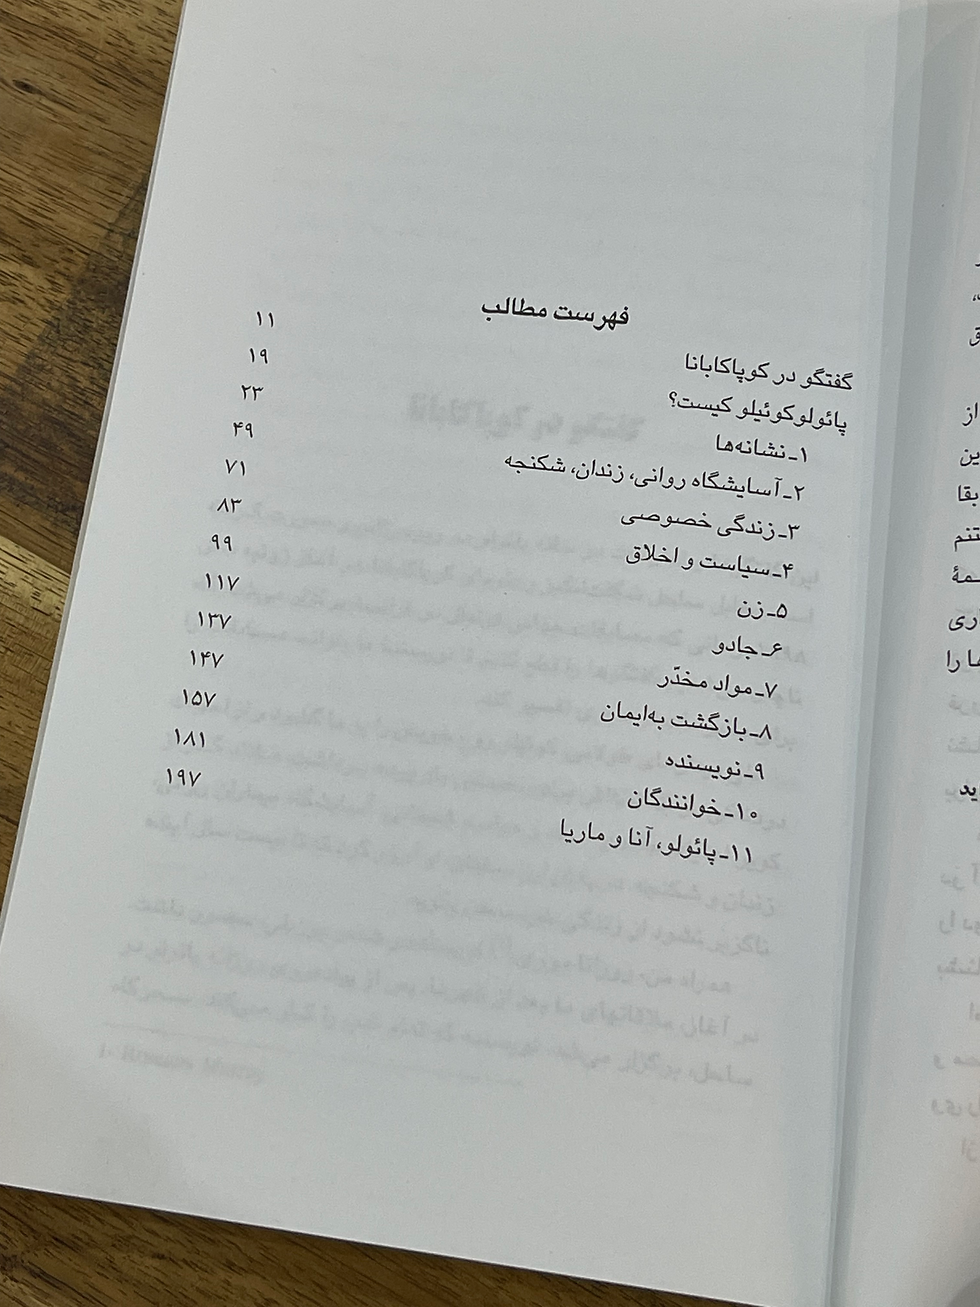 فهرست مطالب
گفتگو در کوپاکابانا ۱۱
پائولوکوئیلو کیست؟ ۱۹
۱ـ نشانه‌ها ۲۳
۲ـ آسایشگاه روانی، زندان، شکنجه ۴۹
۳ـ زندگی خصوصی ۷۱
۴ـ سیاست و اخلاق ۸۳
۵ـ زن ۹۹
۶ـ جادو ۱۱۷
۷ـ مواد مخدّر ۱۳۷
۸ـ بازگشت به‌ایمان ۱۴۷
۹ـ نویسنده ۱۵۷
۱۰ـ خوانندگان ۱۸۱
۱۱ـ پائولو، آنا و ماریا ۱۹۷